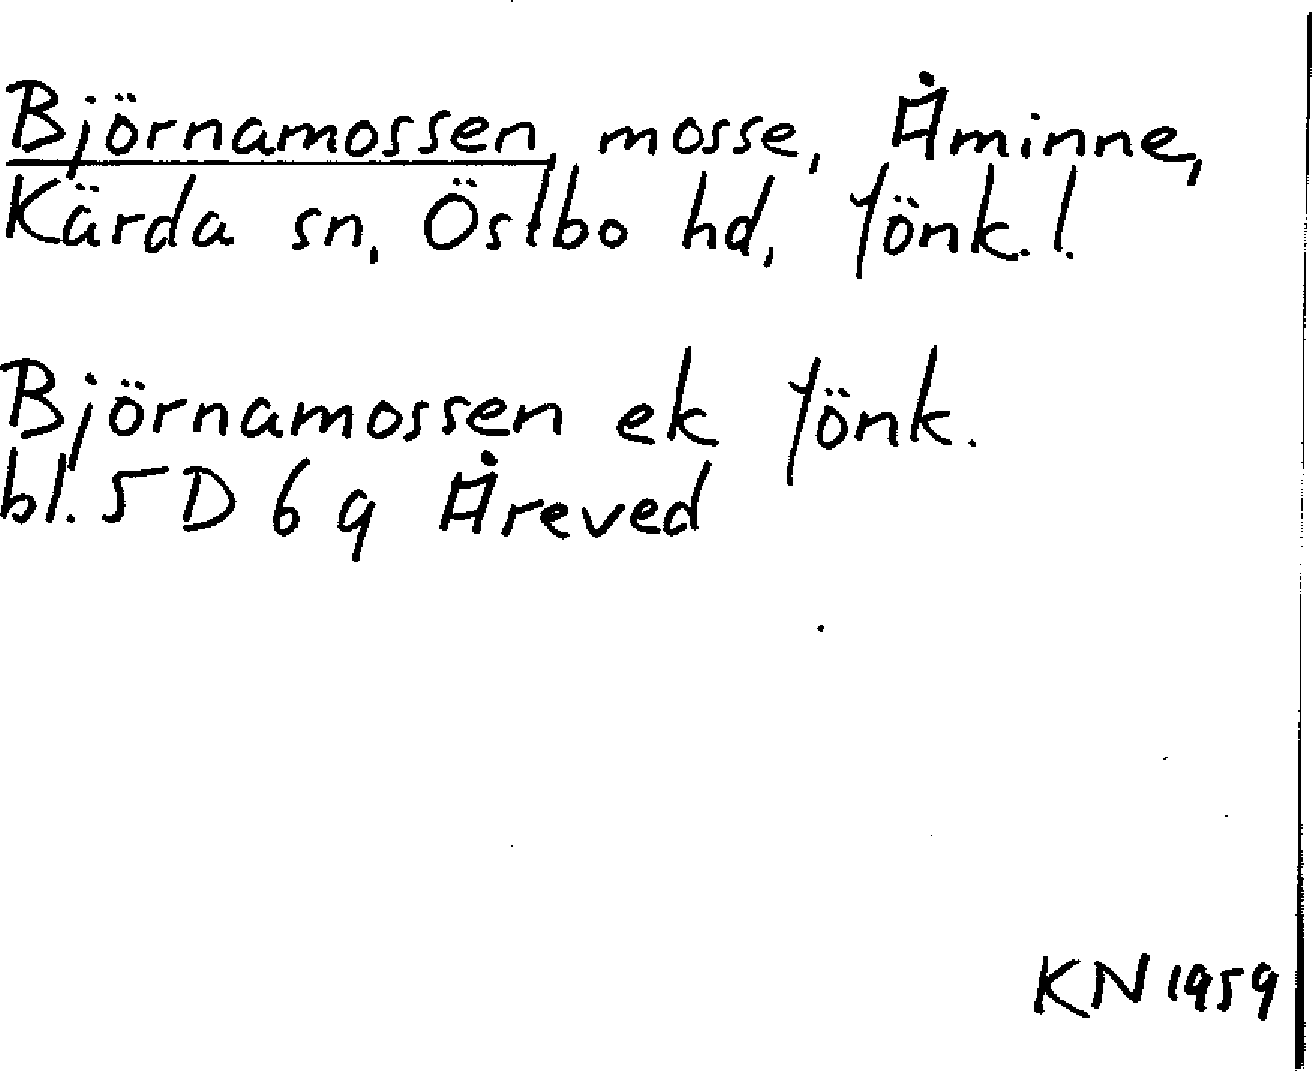 Björnamossen, mosse, Åminne,
Kärda sn, Östbo hd, Jönk. l.
Björnamossen ek Jönk.
bl. 5 D 6 g Åreved
KN 1959